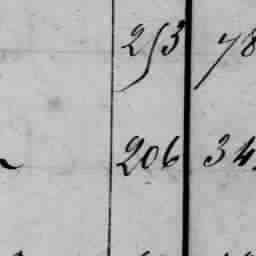 253 78
206 34